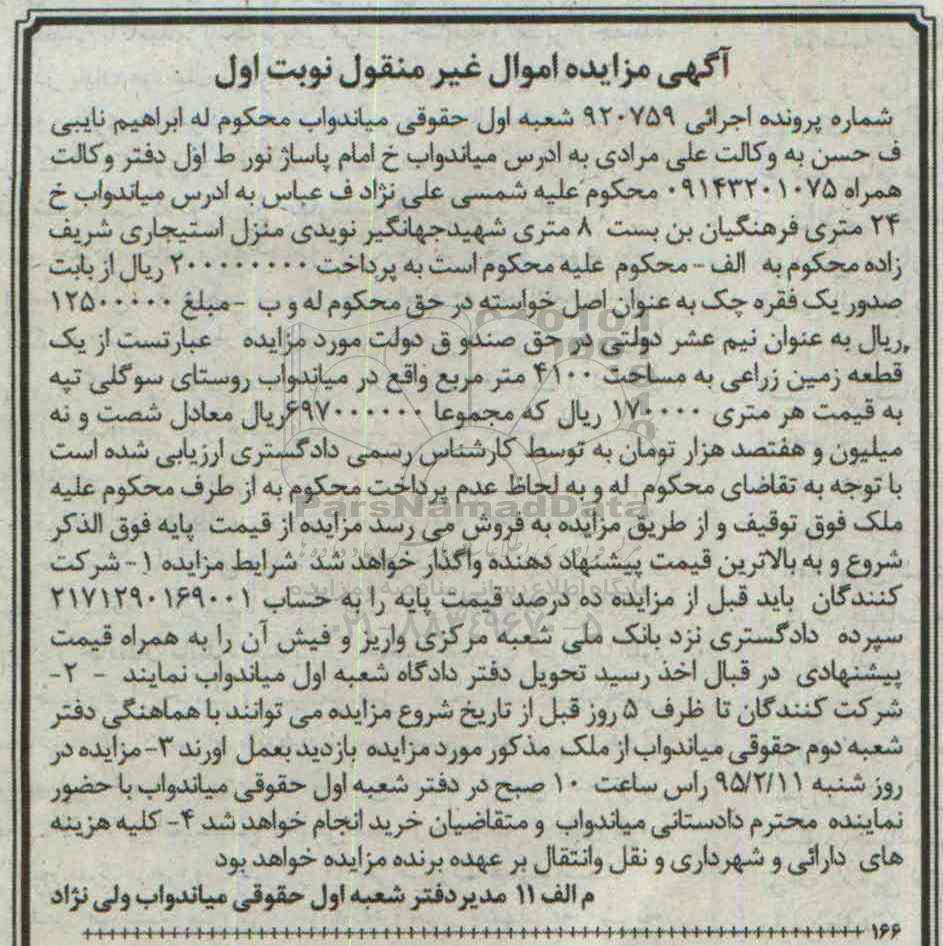 آگهی مزایده اموال غیر منقول نوبت اول
شماره پرونده اجرائی ۹۲۰۷۵۹ شعبه اول حقوقی میاندواب محکوم له ابراهیم نایبی
ف حسن به وکالت علی مرادی به ادرس میاندواب خ امام پاساژ نور ط اول دفتر وکالت
همراه ۰۹۱۴۳۲۰۱۰۷۵ محکوم علیه شمسی علی نژاد ف عباس به ادرس میاندواب خ
۲۴ متری فرهنگیان بن بست ۸ متری شهیدجهانگیر نویدی منزل استیجاری شریف
زاده محکوم به الف - محکوم علیه محکوم است به پرداخت ۲۰۰۰۰۰۰۰۰ ریال از بابت
صدور یک فقره چک به عنوان اصل خواسته در حق محکوم له و ب - مبلغ ۱۲۵۰۰۰۰۰
ریال به عنوان نیم عشر دولتی در حق صندو ق دولت مورد مزایده عبارتست از یک
قطعه زمین زراعی به مساحت ۴۱۰۰ متر مربع واقع در میاندواب روستای سوگلی تپه
به قیمت هر متری ۱۷۰۰۰۰ ریال که مجموعا ۶۹۷۰۰۰۰۰۰ریال معادل شصت و نه
میلیون و هفتصد هزار تومان به توسط کارشناس رسمی دادگستری ارزیابی شده است
با توجه به تقاضای محکوم له و به لحاظ عدم پرداخت محکوم به از طرف محکوم علیه
ParsNamadData
ملک فوق توقیف و از طریق مزایده به فروش می رسد مزایده از قیمت پایه فوق الذکر
شروع و به بالاترین قیمت پیشنهاد دهنده واگذار خواهد شد شرایط مزایده ۱ - شرکت
کنندگان باید قبل از مزایده ده درصد قیمت پایه را به حساب ۲۱۷۱۲۹۰۱۶۹۰۰۱
سپرده دادگستری نزد بانک ملی شعبه مرکزی واریز و فیش آن را به همراه قیمت
پیشنهادی در قبال اخذ رسید تحویل دفتر دادگاه شعبه اول میاندواب نمایند - ۲-
شرکت کنندگان تا ظرف ۵ روز قبل از تاریخ شروع مزایده می توانند با هماهنگی دفتر
شعبه دوم حقوقی میاندواب از ملک مذکور مورد مزایده بازدید بعمل اورند ۳- مزایده در
روز شنبه ۹۵/۲/۱۱ راس ساعت ۱۰ صبح در دفتر شعبه اول حقوقی میاندواب با حضور
نماینده محترم دادستانی میاندواب و متقاضیان خرید انجام خواهد شد ۴- کلیه هزینه
های دارائی و شهرداری و نقل وانتقال بر عهده برنده مزایده خواهد بود
م الف ۱۱ مدیر دفتر شعبه اول حقوقی میاندواب ولی نژاد
۱۶۶